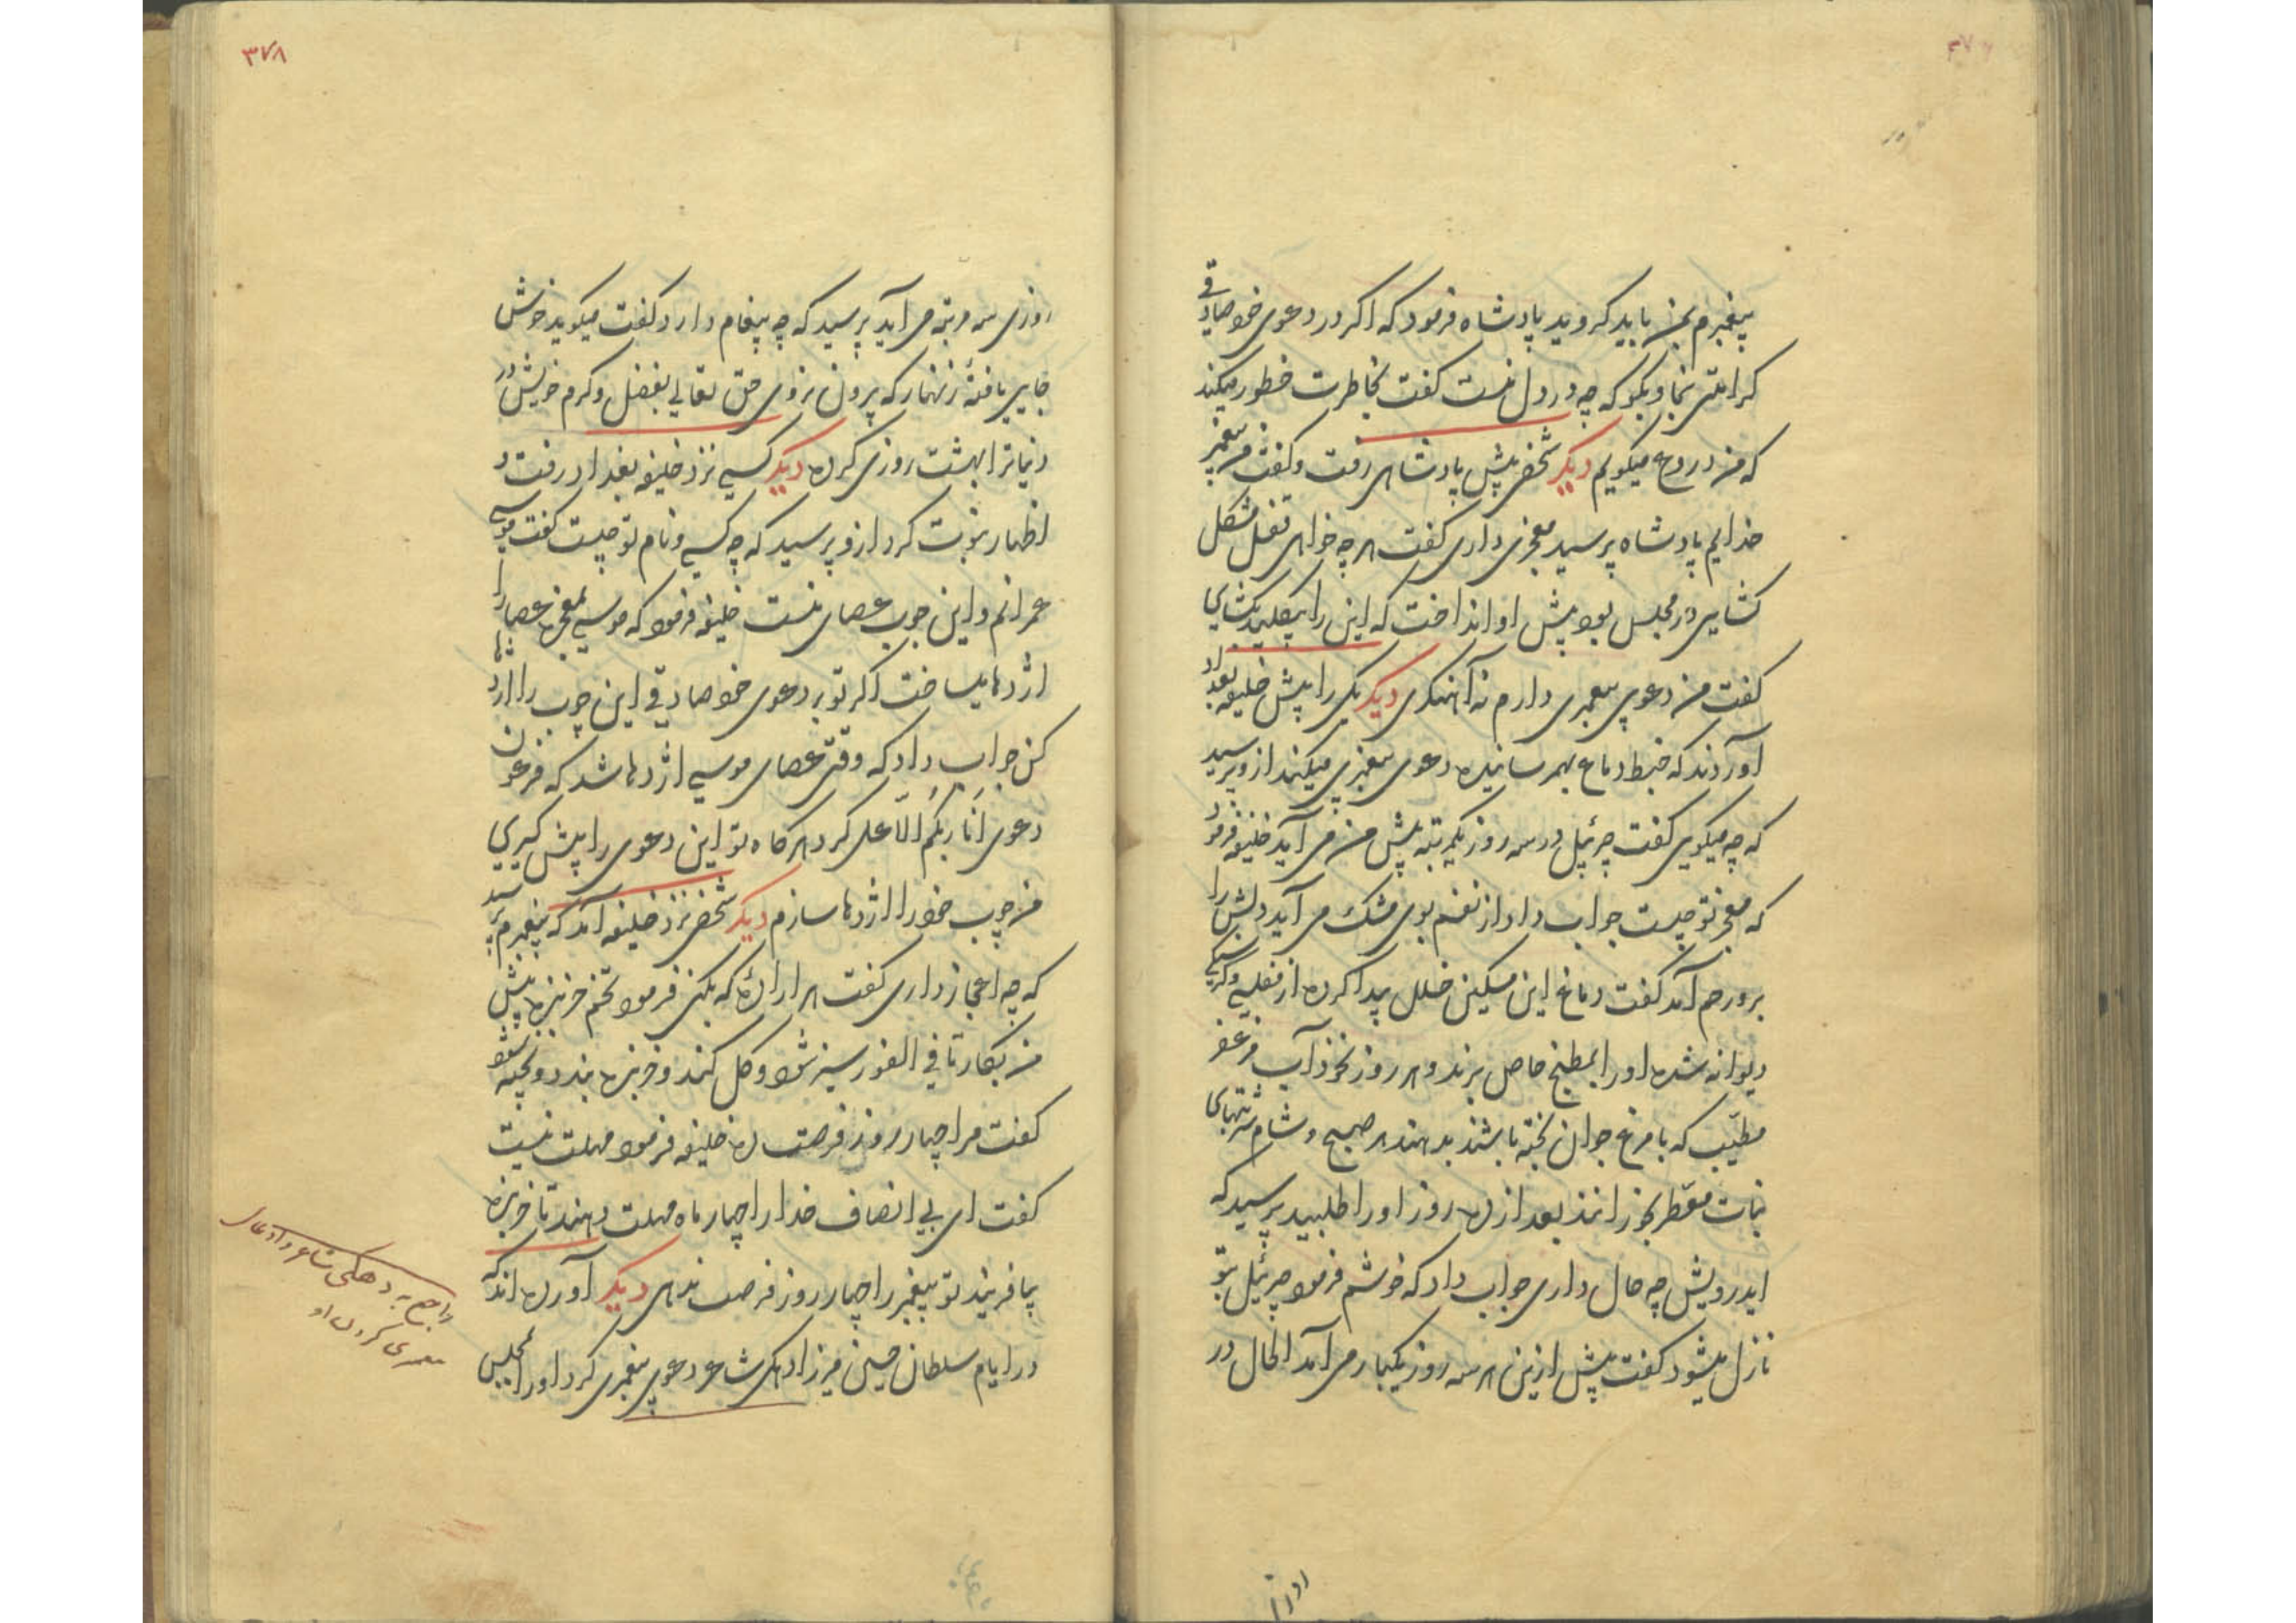 پیغمبرم بمن باید گروید پادشاه فرمود که اگر در دعوی خود صادقی
کرامتی بنما و بگو که چه در دل منست گفت بخاطرت خطور میکند
که من دروغ میگویم دیگر شخصی پیش پادشاهی رفت و گفت من پیغمبر
خدایم پادشاه پرسید معجزی داری گفت هر چه خواهی قفل مشکل
کشایی در مجلس بود پیش او انداخت که این را بیکلید بکشای
گفت من دعوی پیغمبری دارم نه آهنگری دیگر یکی را پیش خلیفه بغداد
آوردند که خبط دماغ بهم رسانیده دعوی پیغمبری میکند ازو پرسید
که چه میگویی گفت جبرئیل در سه روز یکمرتبه پیش من می آید خلیفه فرمود
که معجز تو چیست جواب داد از نفسم بوی مشک می آید دلش را
برو رحم آمد گفت دماغ این مسکین خلل پیدا کرده از مفلسی و گرسنگی
دیوانه شده او را بمطبخ خاص برند و هر روز نخود آب مزعفر
مطیّب که با مرغ جوان پخته باشند بدهند هر صبح و شام شربتهای
نبات معطّر بخورانند بعد از ده روز او را طلبید پرسید که
ایدرویش چه حال داری جواب داد که خوشم فرمود جبرئیل بتو
نازل میشود گفت پیش ازین هر سه روز یکبار می آمد الحال در
۳۷۸
روزی سه مرتبه می آید پرسید که چه پیغام دارد گفت میگوید خوش
جایی یافتهٔ زنهار که بیرون نروی حق تعالی بفضل و کرم خویش در
دنیا ترا بهشت روزی کرده دیگر کسی نزد خلیفه بغداد رفت و
اظهار نبوت کرد ازو پرسید که چه کسی و نام تو چیست گفت موسی
عمرانم و این چوب عصای منست خلیفه فرمود که موسی بمعجزه عصا را
اژدها میساخت اگر تو بر دعوی خود صادقی این چوب را اژدها
کن جواب داد که وقتی عصای موسی اژدها شد که فرعون
دعوی اَنَا ربّکم الاعلی کرد هرگاه تو این دعوی را پیش گیری
من چوب خود را اژدها سازم دیگر شخصی نزد خلیفه آمد که پیغمبرم پرسید
که چه اعجاز داری گفت هر اراده که بکنی فرمود تخم خربزه پیش
من بکار تا فی الفور سبز شود و گل کند و خربزه بندد و پخته شود
گفت مرا چهار روز فرصت ده خلیفه فرمود مهلت نیست
گفت ای بی انصاف خدا را چهار ماه مهلت دهند تا خربزه
بیافریند تو پیغمبر را چهار روز فرصت ندهی دیگر آورده اند که
در ایام سلطان حسین میرزا دهکی شاعر دعوی پیغمبری کرد او را بمجلس
راجع به دهکی شاعر و ادعای
پیغمبری کردن او